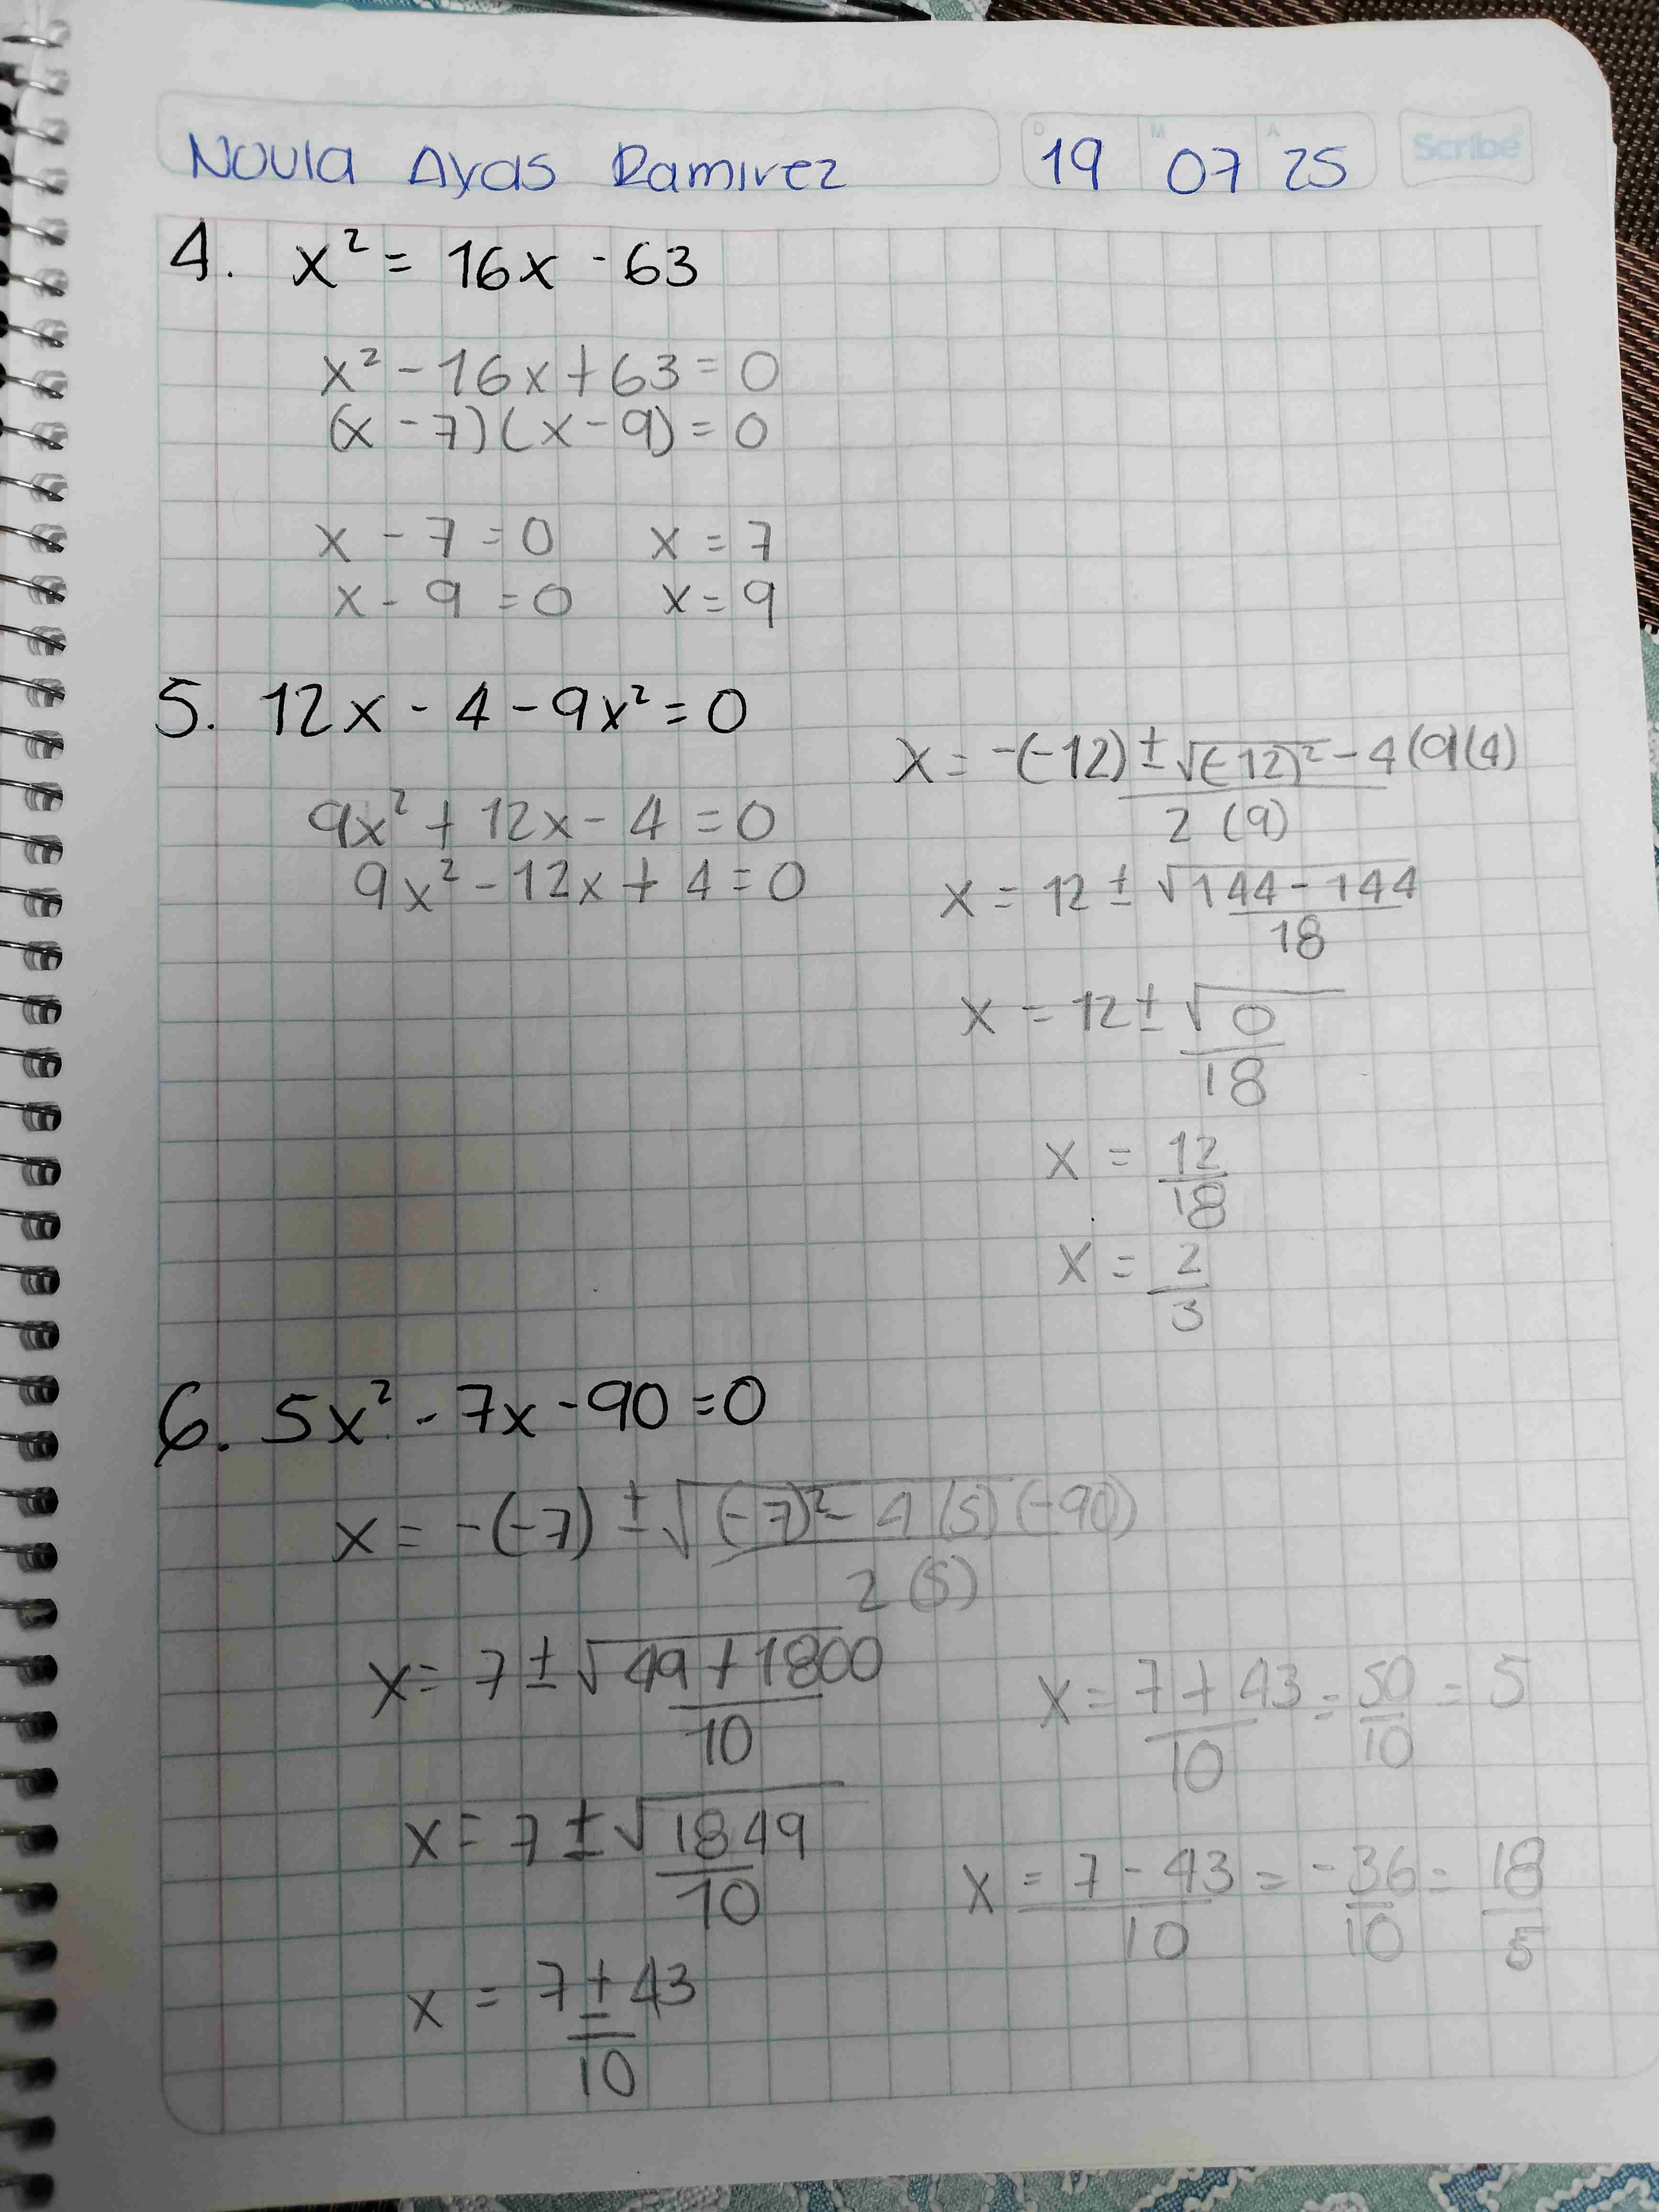 Noula Ayas Ramirez
D M A
19 07 25
Scribe
4. x² = 16x - 63
x² - 16x + 63 = 0
(x - 7)(x - 9) = 0
x - 7 = 0 x = 7
x - 9 = 0 x = 9
5. 12x - 4 - 9x² = 0
9x² + 12x - 4 = 0
9x² - 12x + 4 = 0
x = -(-12) ± √(-12)² - 4(9(4)
2 (9)
x = 12 ± √144 - 144
18
x = 12 ± √0
18
x = 12
18
x = 2
3
6. 5x² - 7x - 90 = 0
x = -(-7) ± √(-7)² - 4 (5) (-90)
2 (5)
x = 7 ± √49 + 1800
10
x = 7 ± √1849
10
x = 7 ± 43
10
x = 7 + 43 = 50 = 5
10 10
x = 7 - 43 = -36 = 18
10 10 5